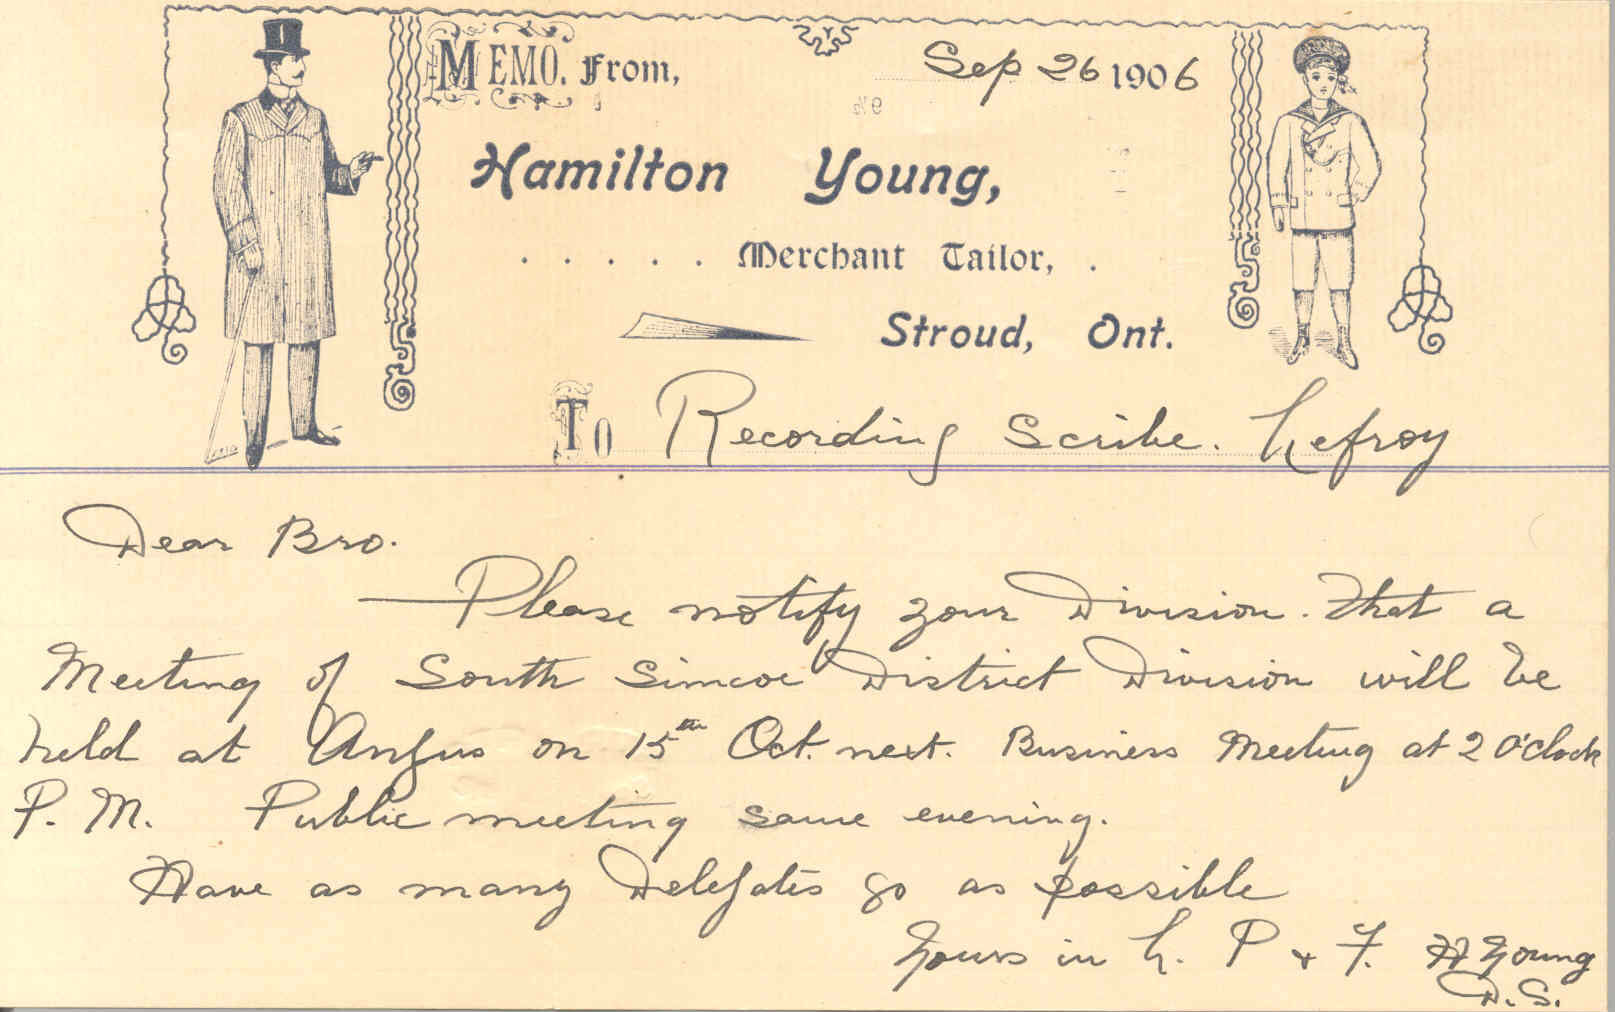 MEMO. From,
Sep 26 1906
Hamilton Young,
. . . . . Merchant Tailor, .
Stroud, Ont.
To Recording Scribe. Lefroy
Dear Bro.
Please notify your Division. that a
Meeting of South Simcoe District Division will be
held at Angus on 15th Oct. next. Business Meeting at 2 O'clock
P. M. Public meeting same evening.
Have as many Delegates go as possible
Yours in L. P & F. H Young
D. S.